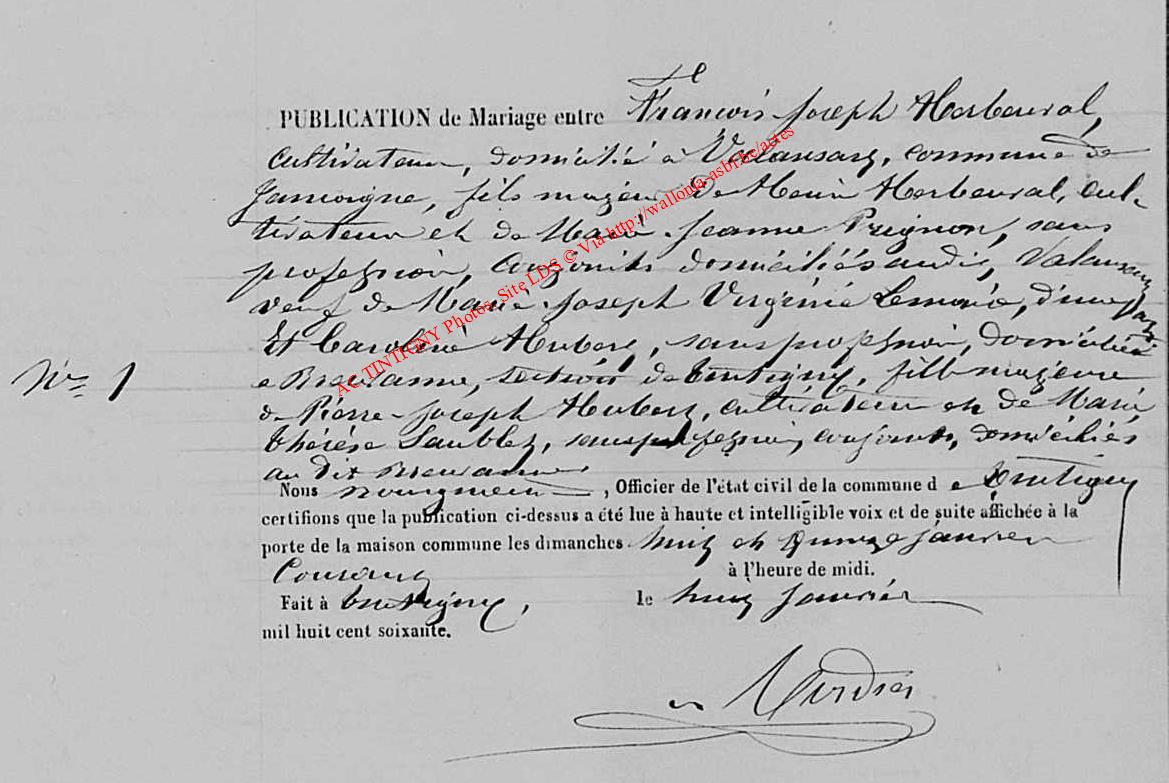 PUBLICATION de Mariage entre François Joseph Herbeuval,
cultivateur, domicilié à Valansart, commune de
Jamoigne, fils majeur de Henri Herbeuval, cul-
tivateur et de Marie Jeanne Prignon, sans
profession, conjoints domiciliés audit Valansart
veuf de Marie Joseph Virginie d'une part
Et Caroline Hubert, sans profession, domiciliée
à Breuvanne, section de Tintigny, fille majeure
Nº 1
de Pierre-Joseph Hubert, cultivateur et de Marie
Thérèse Saublet, sans profession, conjoints, domiciliés
au dit Breuvanne
Nous , Officier de l'état civil de la commune de Tintigny
certifions que la publication ci-dessus a été lue à haute et intelligible voix et de suite affichée à la
porte de la maison commune les dimanches huit et quinze janvier
Courant à l'heure de midi.
Fait à Tintigny, le huit janvier
mil huit cent soixante.
AC TINTIGNY Photos, Site LDS © Via http://wallonia-asbl.be/actes